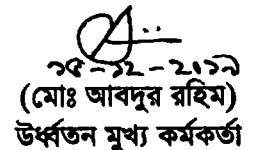 ১৫-১২-২০১৯
(মোঃ আবদুর রহিম)
উর্ধ্বতন মুখ্য কর্মকর্তা